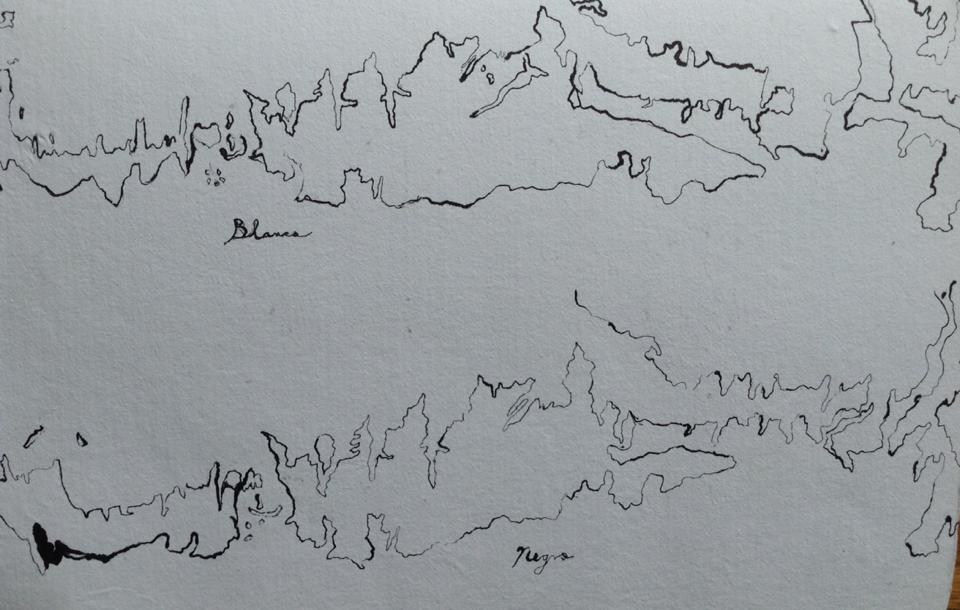 Blanca
Negro